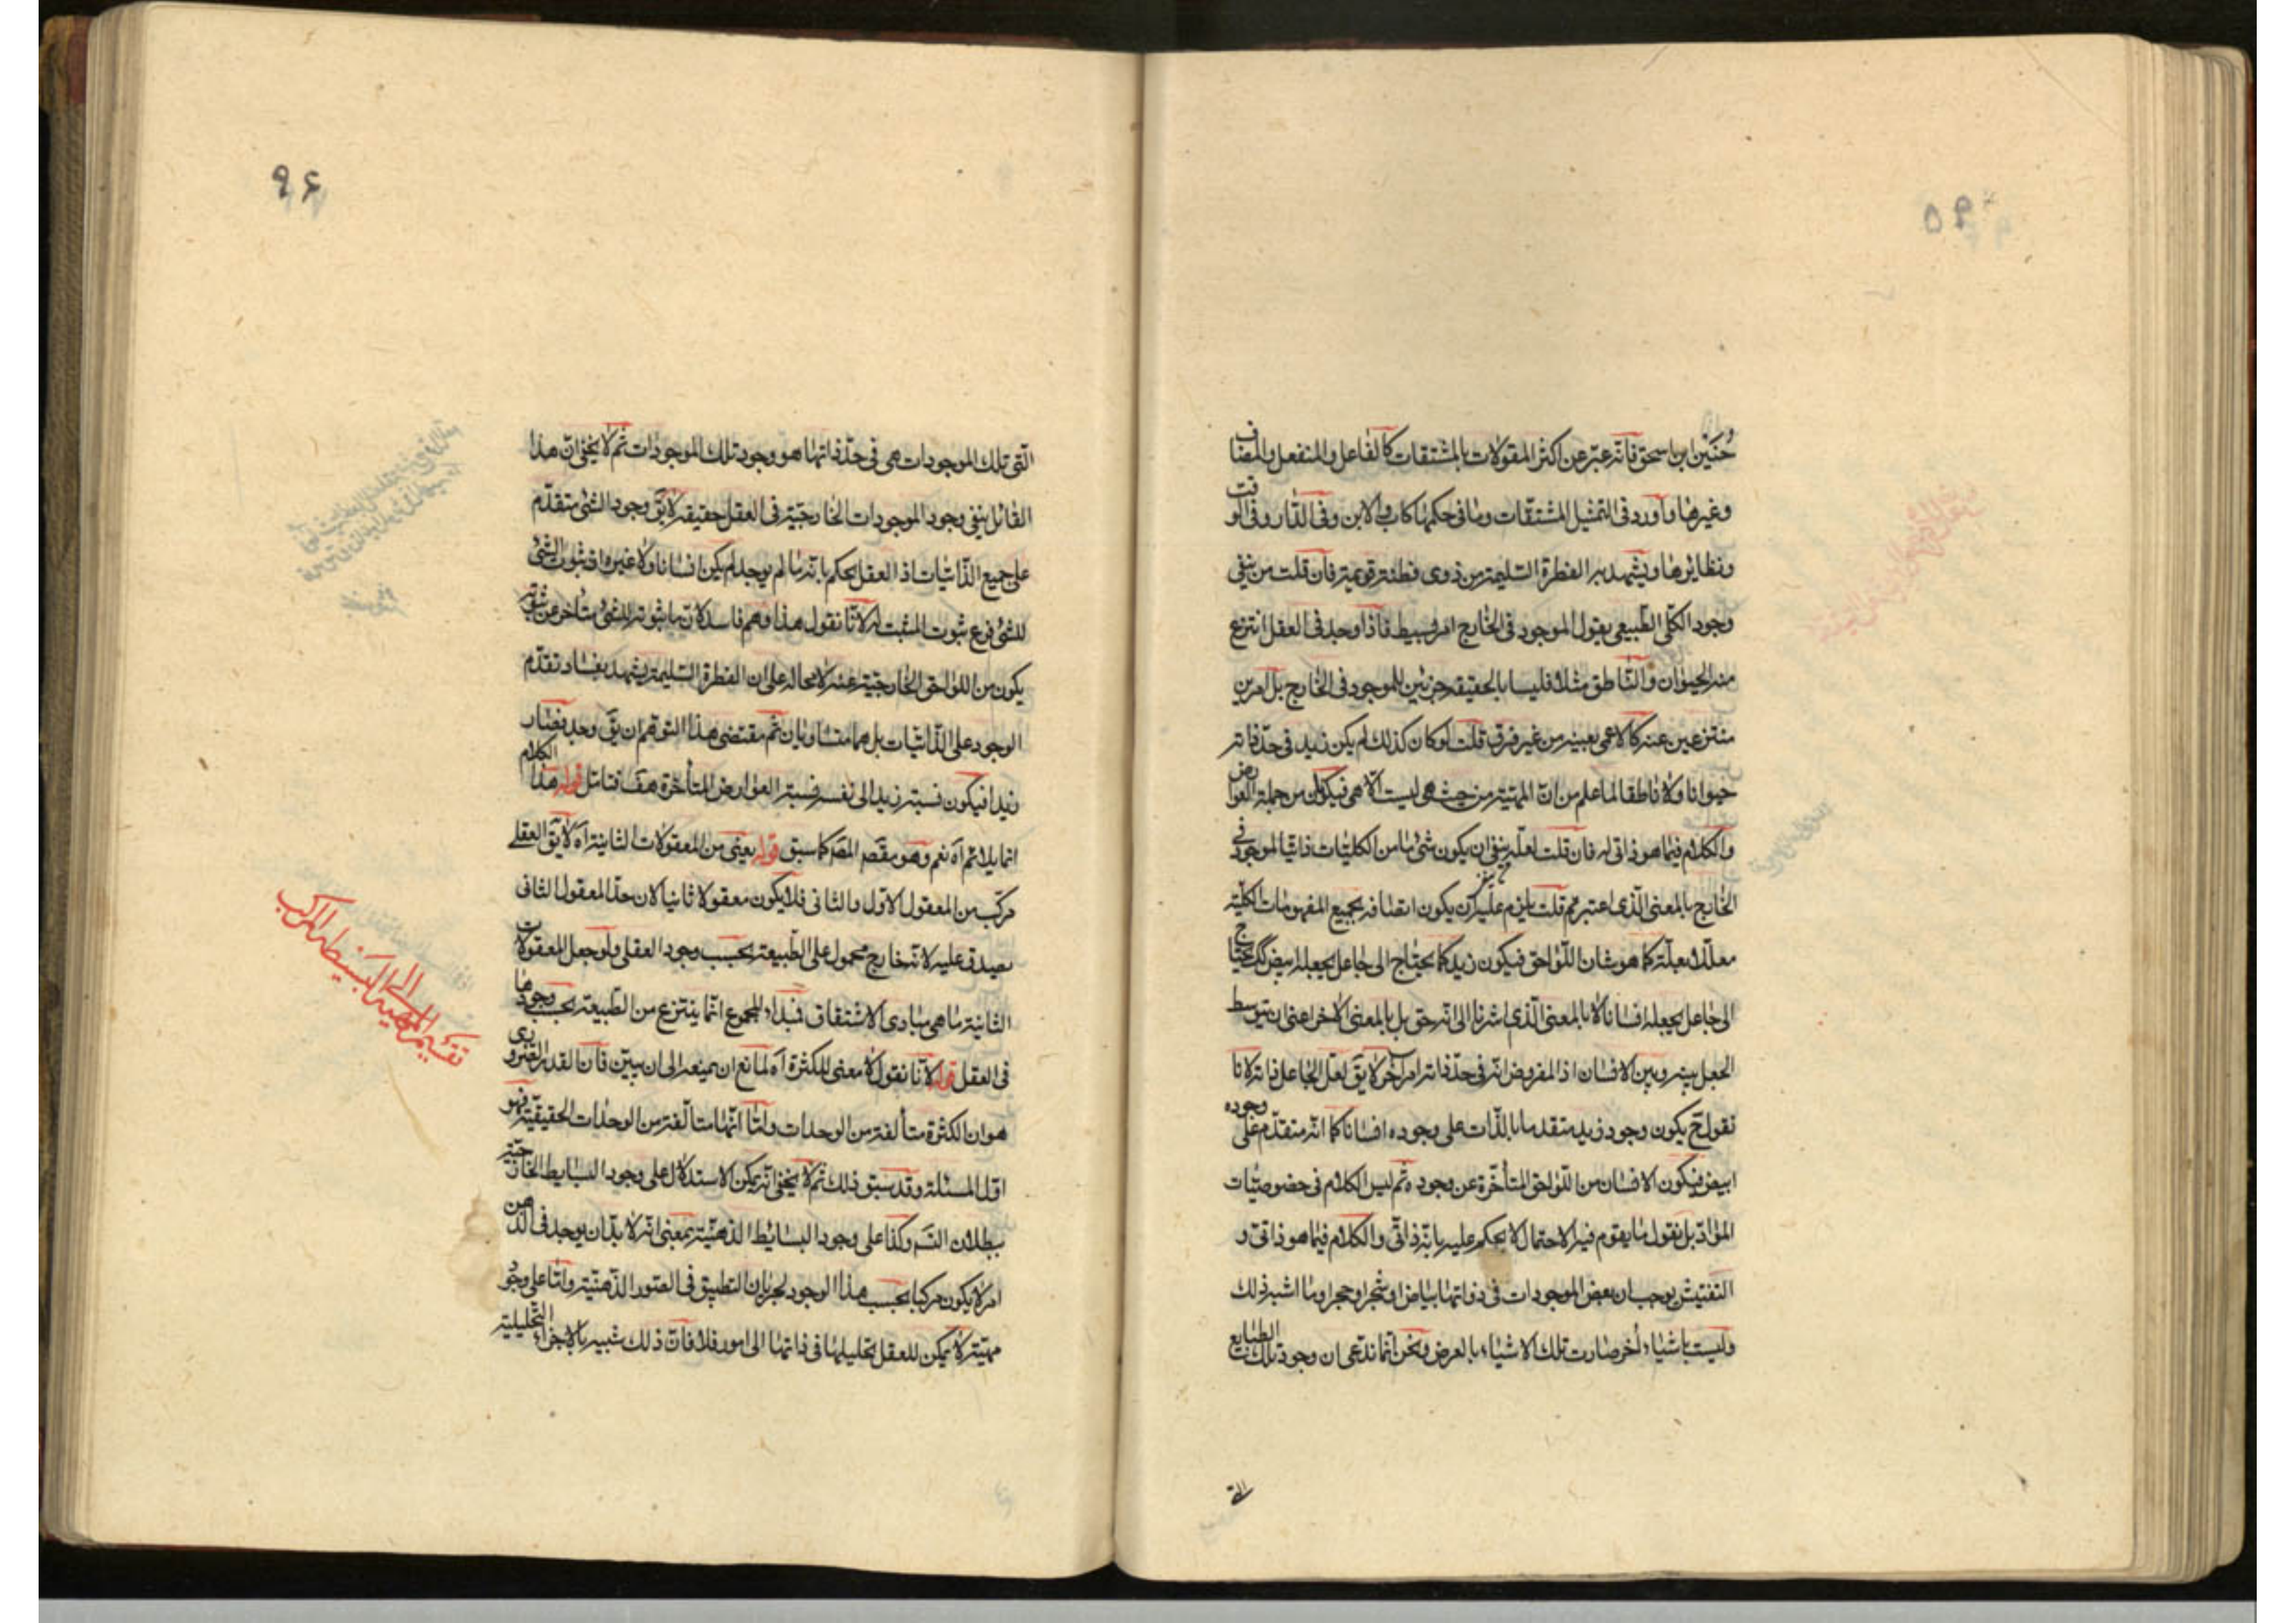 ٩٥
حنين ابن اسحق فانه عبر عن اكثر المقولات بالمشتقات كالفاعل والمنفعل والمضاف
وغيرها وأورد فى التمثيل المشتقات وما فى حكمها كاب والابن وفى الدار وفى الوقت
ونظايرها ويشهد به الفطرة السليمة من ذوى فطنة قويمة فان قلت من ينفى
وجود الكلى الطبيعى يقول الموجود فى الخارج امر بسيط فاذا وجد فى العقل انتزع
منه الحيوان والناطق مثلا فليسا بالحقيقه جزئين للموجود فى الخارج بل امرين
منتزعين عنه كالاعمى بعينه من غير فرق قلت لو كان كذلك لم يكن زيد فى حد ذاته
حيوانا ولا ناطقا لما علم من ان المهية من حيث هى ليست الا هى فيكون من جملة العوارض
والكلام فيما هو ذاتى له فان قلت لعله ينفى ان يكون شئ ما من الكليات ذاتيا للموجود فى
الخارج بالمعنى الذى اعتبرتم قلت يلزم عليه ان يكون اتصافه بجميع المفهومات الكلية
معللا بعلة كما هو شان اللواحق فيكون زيد كما يحتاج الى جاعل يجعله ابيض كك يحتاج
الى جاعل يجعله انسانا لا بالمعنى الذى اشرنا الى انه حق بل بالمعنى الاخر اعنى ان يتوسط
الجعل بينه وبين الانسان اذ المفروض انه فى حد ذاته امر آخر لا يق لعل الجاعل ذاته لانا
نقول ح يكون وجود زيد متقدما بالذات على وجوده انسانا كما انه متقدم على وجوده
ابيض فيكون الانسان من اللواحق المتأخرة عن وجوده ثم ليس الكلام فى خصوصيات
المواد بل نقول ما يقوم فيه الاحتمال لا يحكم عليه بانه ذاتى والكلام فيما هو ذاتى و
التفتيش يوجب ان بعض الموجودات فى ذواتها بياض او شجر او حجر او ما اشبه ذلك
وليست باشياء أخر صارت تلك الاشياء بالعرض ونحن انما ندعى ان وجود تلك الطبايع
التى
٩۶
التى تلك الموجودات هى فى حد ذاتها هو وجود تلك الموجودات ثم لا يخفى ان هذا
القائل ينفى وجود الموجودات الخارجية فى العقل حقيقه لا يق وجود الشئ متقدم
على جميع الذاتيات اذ العقل يحكم بانه ما لم يوجد لم يكن انسانا ولا غيره اذ ثبوت الشئ
للشئ فرع ثبوت المثبت له لانا نقول هذا وهم فاسد لان ما ثبوته للشئ متأخر عن ثبوته
يكون من اللواحق الخارجية عنه لا محالة على ان الفطرة السليمة يشهد بفساد تقدم
الوجود على الذاتيات بل هما متساويان ثم مقتضى هذا التوهم ان يق وجد فصار
زيدا فيكون نسبة زيد الى نفسه نسبة العوارض المتأخرة هف فتامل قوله هذا الكلام
انما يلائم آه نعم وهو مقصم المصر كما سبق قوله يعنى من المعقولات الثانية آه لا يق العقلى
مركب من المعقول الاول والثانى فلا يكون معقولا ثانيا لان حد المعقول الثانى
يصدق عليه لانه خارج محمول على الطبيعة بحسب وجود العقلى ولو جعل المعقولات
الثانية ما هى مبادى الاشتقاق فمبداء المجموع انما ينتزع من الطبيعة بحسب وجودها
فى العقل قوله لانا نقول لا معنى للكثرة آه لمانع ان يمنعه الى ان يبين فان القدر الضرورى
هو ان الكثرة متألفة من الوحدات واما انها متألفة من الوحدات الحقيقية فهو
اول المسئلة وقد سبق ذلك ثم لا يخفى انه يمكن الاستدلال على وجود البسايط الخارجية
ببطلان التسم وكذا على وجود البسائط الذهنية بمعنى انه لا بد ان يوجد فى الذهن
امر لا يكون مركبا بحسب هذا الوجود لجريان التطبيق فى الصور الذهنية واما على وجود
مهية لا يمكن للعقل تحليلها فى ذاتها الى امور فلا فان ذلك شبيه بالاجزاء التحليلية
تقسيم المهية الى البسيطة والمركب